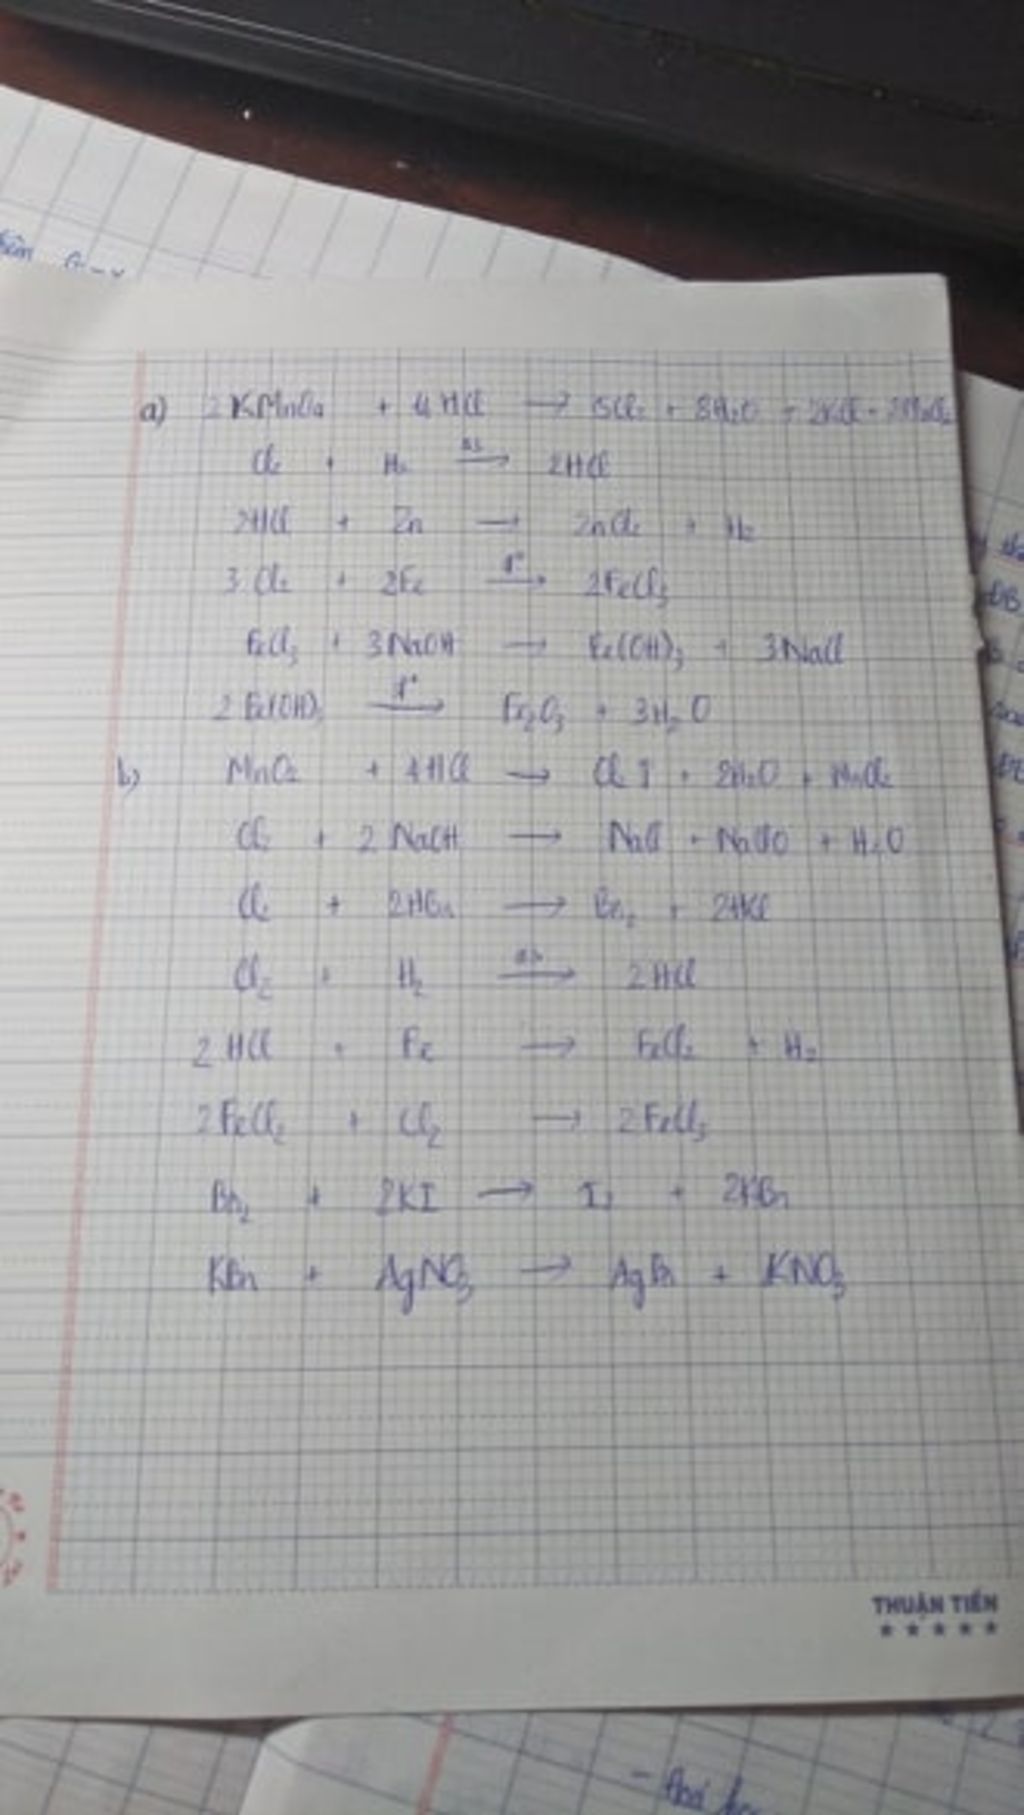 a) 2KMnO4 + 4HCl → 5Cl2 + 8H2O + 2KCl + 2MnCl2
Cl2 + H2 as→ 2HCl
2HCl + Zn → ZnCl2 + H2
3Cl2 + 2Fe t°→ 2FeCl3
FeCl3 + 3NaOH → Fe(OH)3 + 3NaCl
2Fe(OH)3 t°→ Fe2O3 + 3H2O
b) MnO2 + 4HCl → Cl2↑ + 2H2O + MnCl2
Cl2 + 2NaOH → NaCl + NaClO + H2O
Cl2 + 2HBr → Br2 + 2HCl
Cl2 + H2 as→ 2HCl
2HCl + Fe → FeCl2 + H2
2FeCl2 + Cl2 → 2FeCl3
Br2 + 2KI → I2 + 2KBr
KBr + AgNO3 → AgBr + KNO3
THUẬN TIẾN